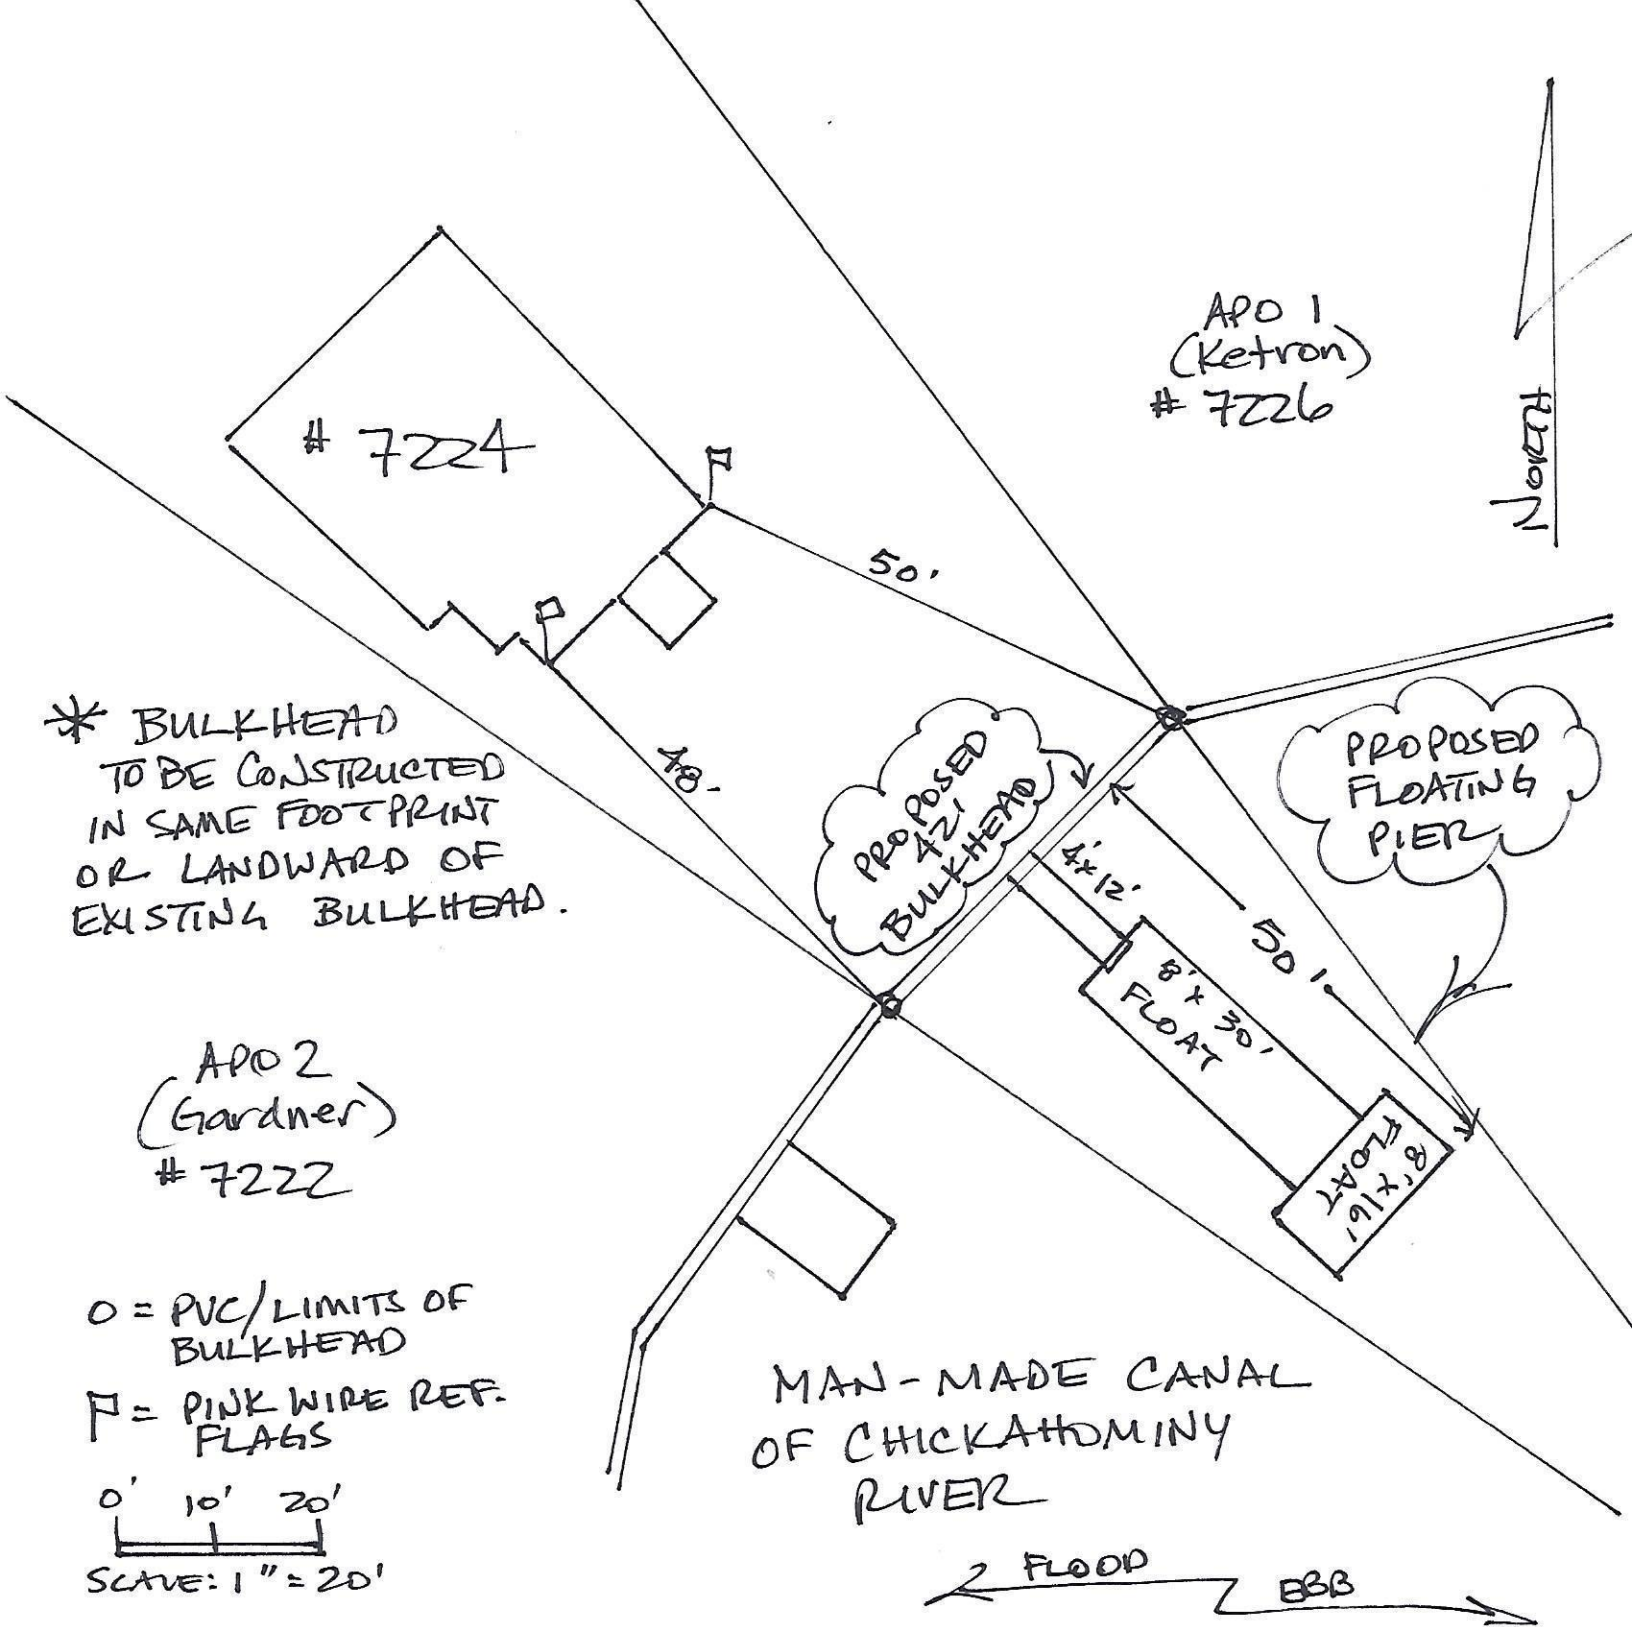 APO 1
(Ketron)
# 7226
NORTH
# 7224
50'
48'
* BULKHEAD
TO BE CONSTRUCTED
IN SAME FOOTPRINT
OR LANDWARD OF
EXISTING BULKHEAD.
PROPOSED
42'
BULKHEAD
PROPOSED
FLOATING
PIER
4'x12'
50'
8' x 30'
FLOAT
8' x 16'
FLOAT
APO 2
(Gardner)
# 7222
O = PVC/LIMITS OF
BULKHEAD
P = PINK WIRE REF.
FLAGS
0' 10' 20'
SCALE: 1" = 20'
MAN-MADE CANAL
OF CHICKAHOMINY
RIVER
FLOOD
EBB